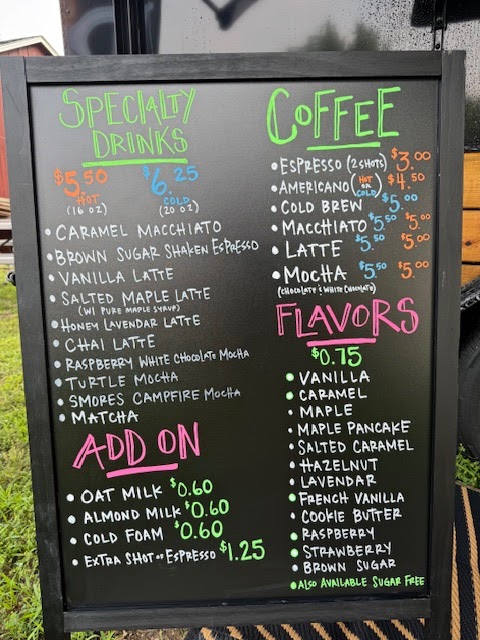 SPECIALTY
DRINKS
$5.50 $6.25
HOT COLD
(16 OZ) (20 OZ)
• CARAMEL MACCHIATO
• BROWN SUGAR SHAKEN ESPRESSO
• VANILLA LATTE
• SALTED MAPLE LATTE
(W/ PURE MAPLE SYRUP)
• HONEY LAVENDAR LATTE
• CHAI LATTE
• RASPBERRY WHITE CHOCOLATE MOCHA
• TURTLE MOCHA
• SMORES CAMPFIRE MOCHA
• MATCHA
ADD ON
• OAT MILK $0.60
• ALMOND MILK $0.60
• COLD FOAM $0.60
• EXTRA SHOT OF ESPRESSO $1.25
COFFEE
• ESPRESSO (2 SHOTS) $3.00
• AMERICANO (HOT OR COLD) $4.50
• COLD BREW $5.00
• MACCHIATO $5.50 $5.00
• LATTE $5.50 $5.00
• MOCHA $5.50 $5.00
(CHOCOLATE & WHITE CHOCOLATE)
FLAVORS
$0.75
• VANILLA
• CARAMEL
• MAPLE
• MAPLE PANCAKE
• SALTED CARAMEL
• HAZELNUT
• LAVENDAR
• FRENCH VANILLA
• COOKIE BUTTER
• RASPBERRY
• STRAWBERRY
• BROWN SUGAR
• ALSO AVAILABLE SUGAR FREE